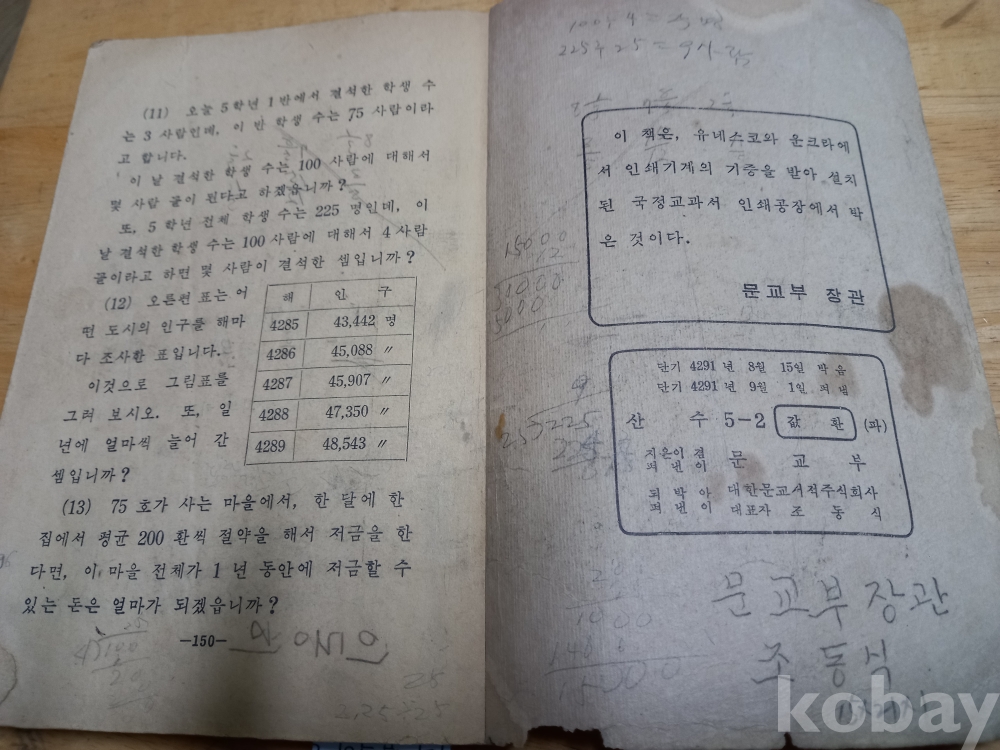 (11) 오늘 5학년 1반에서 결석한 학생 수
는 3 사람인데, 이 반 학생 수는 75 사람이라
고 합니다.
이 날 결석한 학생 수는 100 사람에 대해서
몇 사람 꼴이 된다고 하겠읍니까?
또, 5 학년 전체 학생 수는 225 명인데, 이
날 결석한 학생 수는 100 사람에 대해서 4 사람
꼴이라고 하면 몇 사람이 결석한 셈입니까?
(12) 오른편 표는 어
떤 도시의 인구를 해마
다 조사한 표입니다.
이것으로 그림표를
그려 보시오. 또, 일
년에 얼마씩 늘어 간
셈입니까?
해 인 구
4285 43,442 명
4286 45,088 〃
4287 45,907 〃
4288 47,350 〃
4289 48,543 〃
(13) 75 호가 사는 마을에서, 한 달에 한
집에서 평균 200 환씩 절약을 해서 저금을 한
다면, 이 마을 전체가 1 년 동안에 저금할 수
있는 돈은 얼마가 되겠읍니까?
—150—
100÷4=
225÷25=
이 책은, 유네스코와 운크라에
서 인쇄기계의 기증을 받아 설치
된 국정교과서 인쇄공장에서 박
은 것이다.
문교부 장관
15000
단기 4291 년 8월 15일 박음
단기 4291 년 9월 1일 펴냄
산 수 5-2 값 환 (파)
지은이 겸 펴낸이 문 교 부
되박아 펴낸이 대한문교서적주식회사
대표자 조 동 식
25)225
문교부장관
조동식
kobay